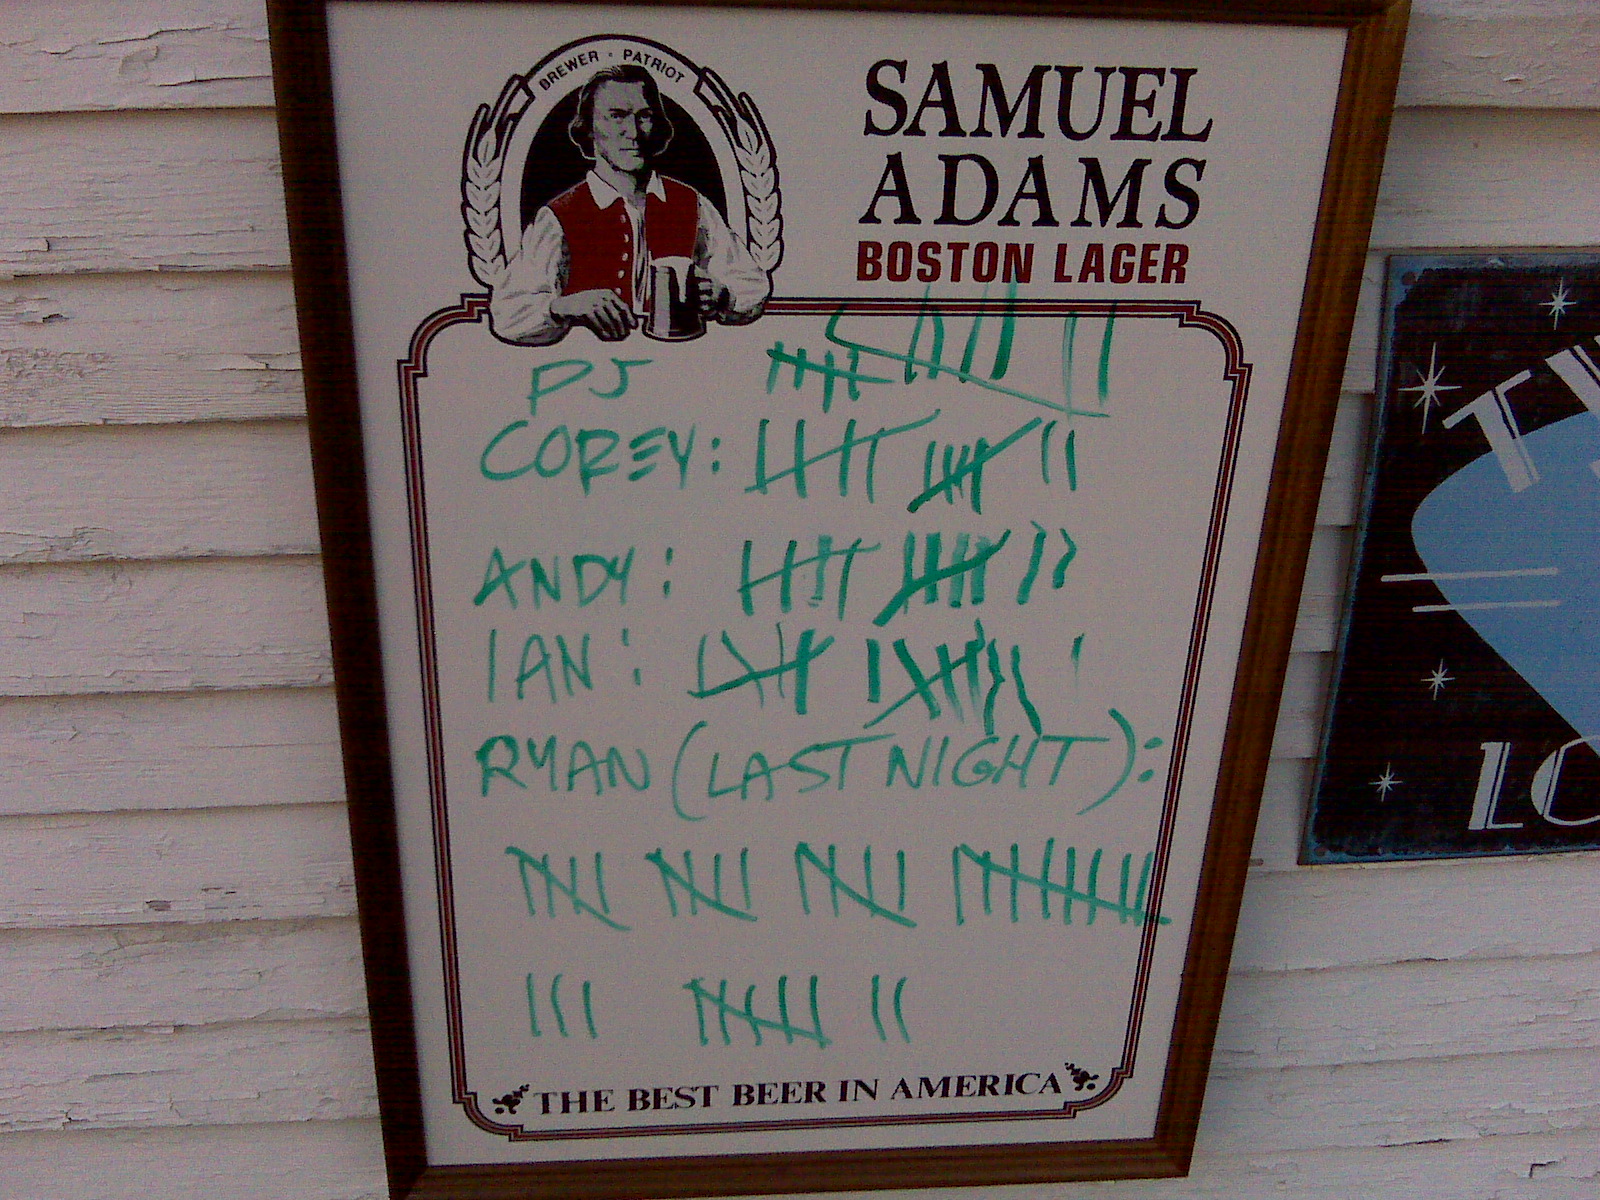 BREWER · PATRIOT
SAMUEL
ADAMS
BOSTON LAGER
PJ
COREY:
ANDY:
IAN:
RYAN (LAST NIGHT):
THE BEST BEER IN AMERICA
LO